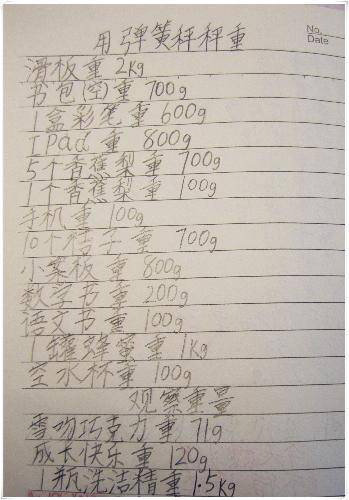 No.
Date
用弹簧秤秤重
滑板重 2kg
书包(空)重 700g
1盒彩笔重 600g
IPad 重 800g
5个香蕉梨重 700g
1个香蕉梨重 100g
手机重 100g
10个桔子重 700g
小菜板重 800g
数学书重 200g
语文书重 100g
1罐蜂蜜重 1kg
空水杯重 100g
观察重量
雪吻巧克力重 71g
成长快乐重 120g
1瓶洗洁精重 1.5kg